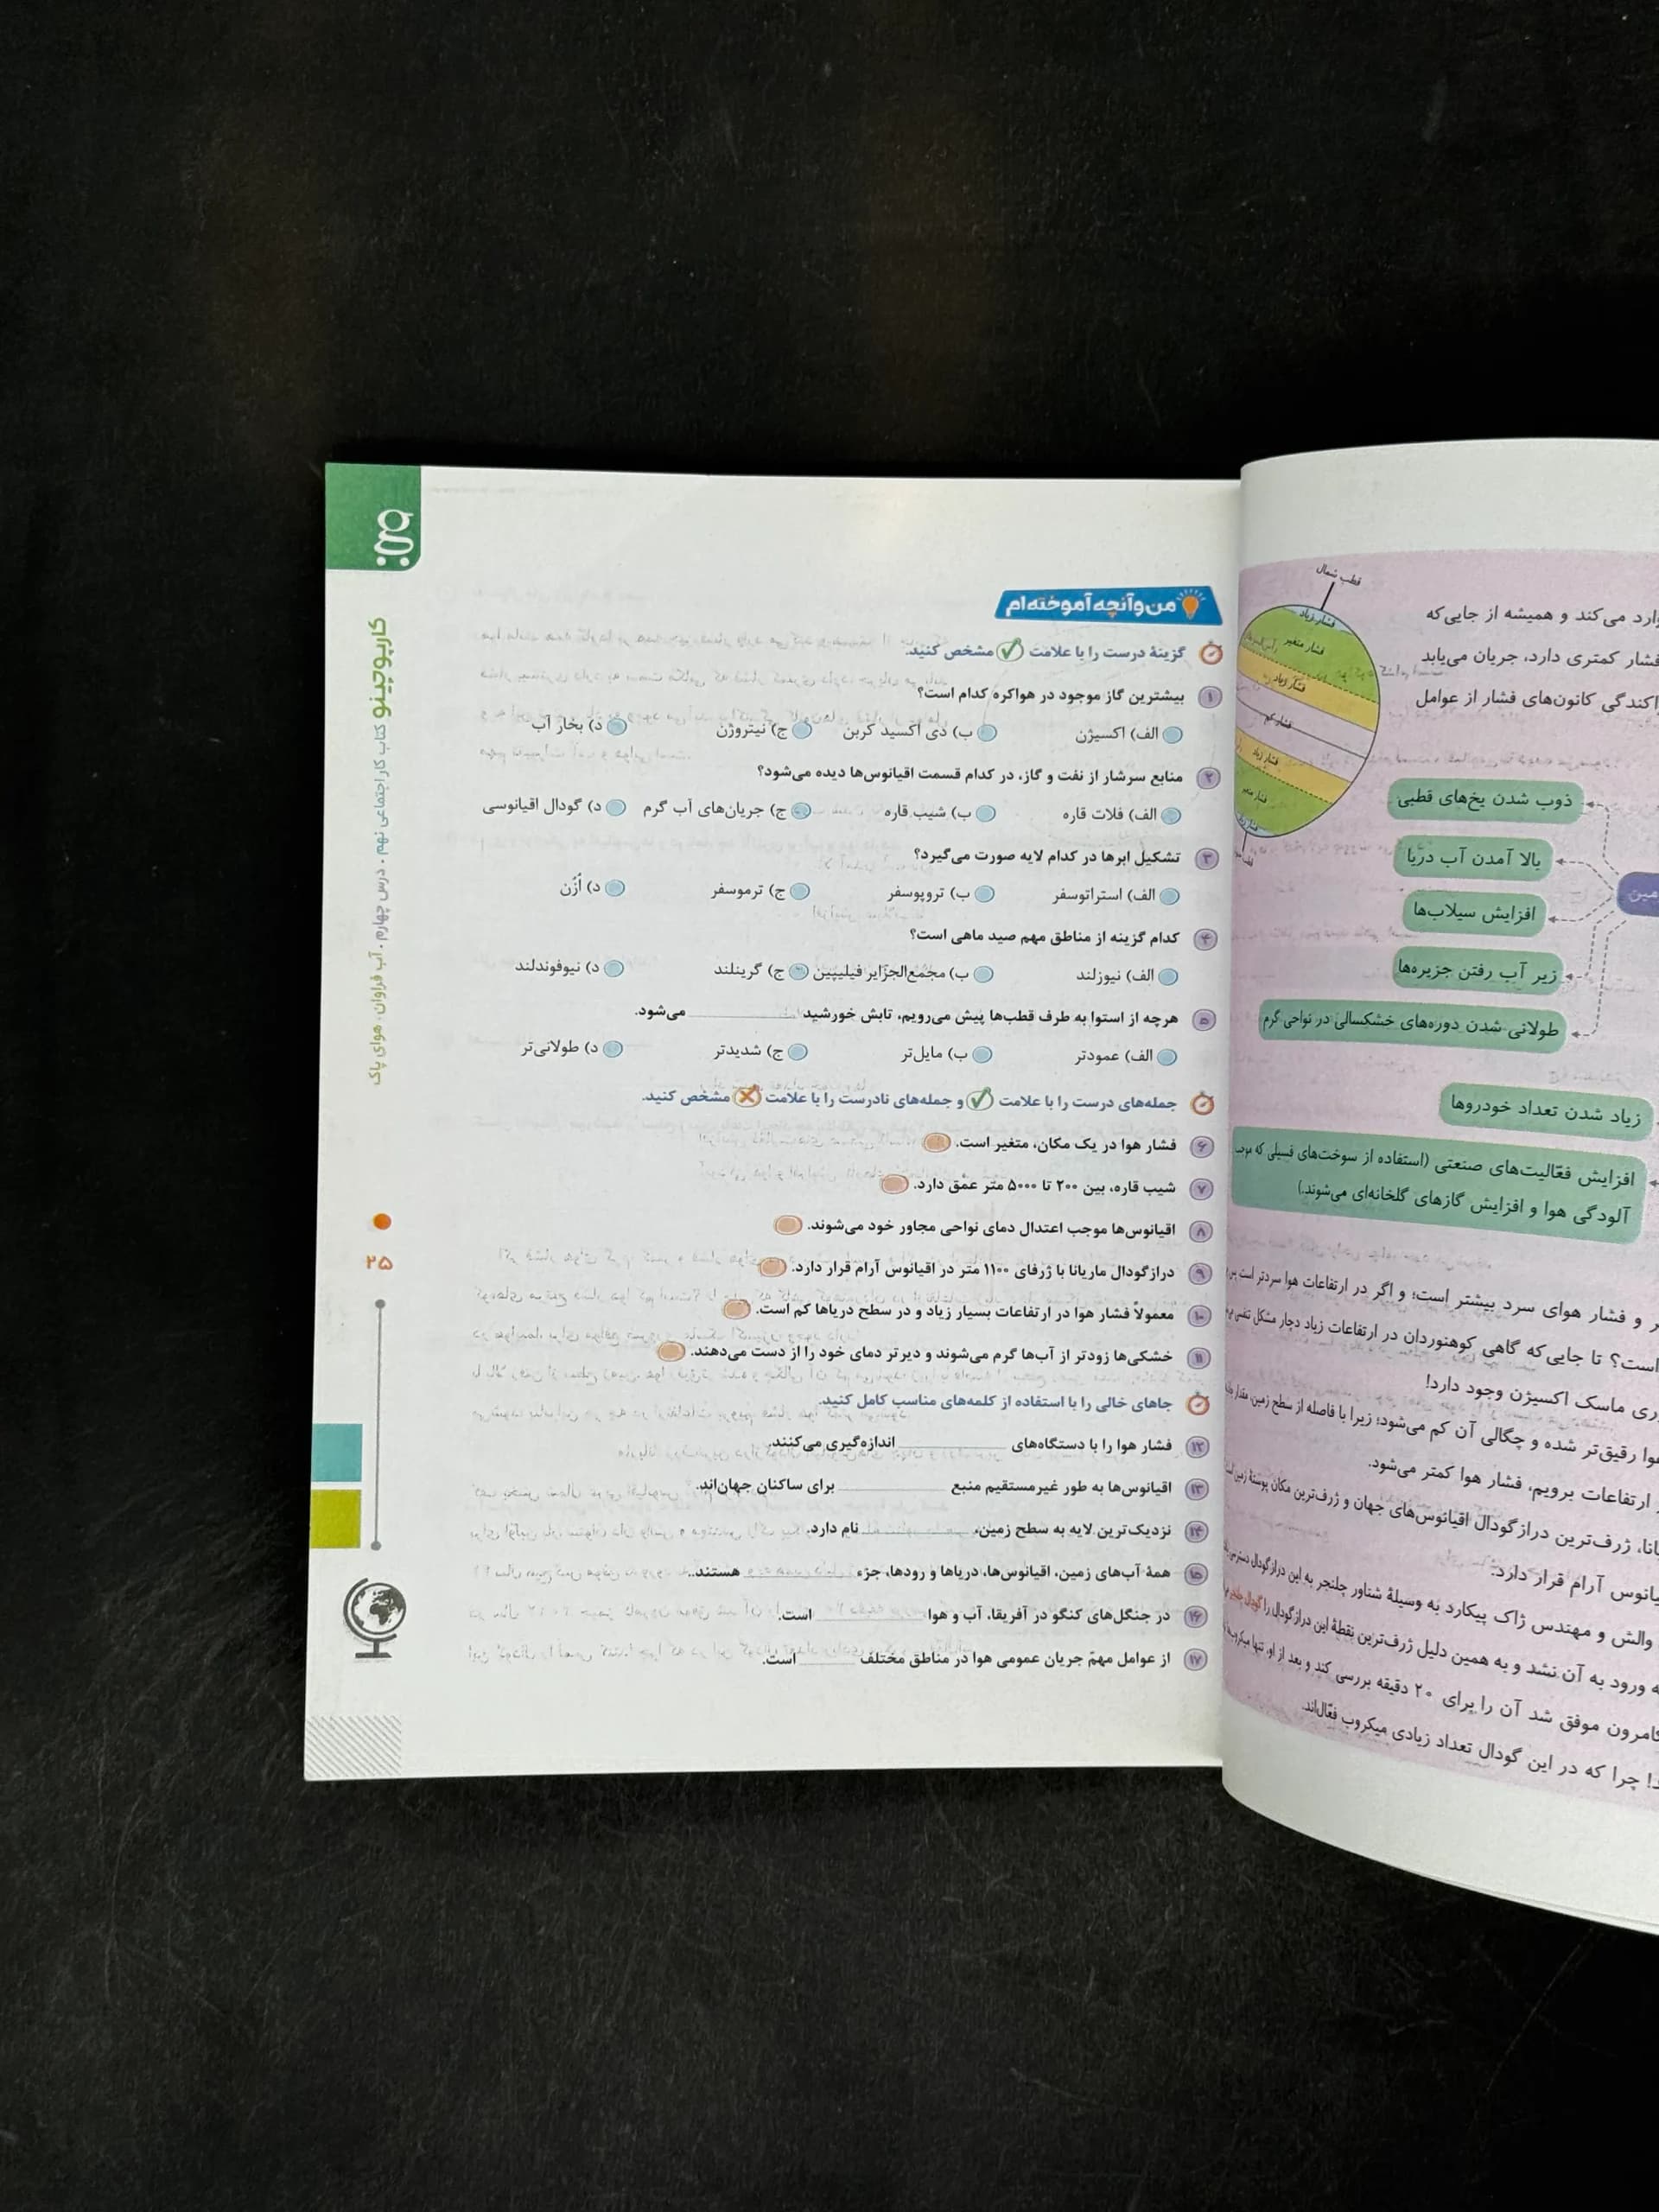 قطب شمال
فشار زیاد
فشار متغیر
فشار زیاد
فشار کم
فشار زیاد
فشار متغیر
وارد می‌کند و همیشه از جایی‌که
فشار کمتری دارد، جریان می‌یابد
پراکندگی کانون‌های فشار از عوامل
ذوب شدن یخ‌های قطبی
بالا آمدن آب دریا
افزایش سیلاب‌ها
زیر آب رفتن جزیره‌ها
طولانی شدن دوره‌های خشکسالی در نواحی گرم
زیاد شدن تعداد خودروها
افزایش فعّالیت‌های صنعتی (استفاده از سوخت‌های فسیلی که موجب
آلودگی هوا و افزایش گازهای گلخانه‌ای می‌شوند.)
و فشار هوای سرد بیشتر است؛ و اگر در ارتفاعات هوا سردتر است
است؟ تا جایی‌که گاهی کوهنوردان در ارتفاعات زیاد دچار مشکل تنفسی
ماسک اکسیژن وجود دارد!
هوا رقیق‌تر شده و چگالی آن کم می‌شود؛ زیرا با فاصله از سطح زمین، مقدار
ارتفاعات برویم، فشار هوا کمتر می‌شود.
ژرف‌ترین درازگودال اقیانوس‌های جهان و ژرف‌ترین مکان پوستهٔ زمین
اقیانوس آرام قرار دارد.
والش و مهندس ژاک پیکارد به وسیلهٔ شناور چلنجر به این درازگودال
ورود به آن نشد و به همین دلیل ژرف‌ترین نقطهٔ این درازگودال را گودال چلنجر
کامرون موفق شد آن را برای ۲۰ دقیقه بررسی کند و بعد از او، تنها
چرا که در این گودال تعداد زیادی میکروب فعّال‌اند.
من و آنچه آموخته‌ام
گزینهٔ درست را با علامت ✓ مشخص کنید.
۱ بیشترین گاز موجود در هواکره کدام است؟
الف) اکسیژن ب) دی اکسید کربن ج) نیتروژن د) بخار آب
۲ منابع سرشار از نفت و گاز، در کدام قسمت اقیانوس‌ها دیده می‌شود؟
الف) فلات قاره ب) شیب قاره ج) جریان‌های آب گرم د) گودال اقیانوسی
۳ تشکیل ابرها در کدام لایه صورت می‌گیرد؟
الف) استراتوسفر ب) تروپوسفر ج) ترموسفر د) اُزُن
۴ کدام گزینه از مناطق مهم صید ماهی است؟
الف) نیوزلند ب) مجمع‌الجزایر فیلیپین ج) گرینلند د) نیوفوندلند
۵ هرچه از استوا به طرف قطب‌ها پیش می‌رویم، تابش خورشید ________ می‌شود.
الف) عمودتر ب) مایل‌تر ج) شدیدتر د) طولانی‌تر
جمله‌های درست را با علامت ✓ و جمله‌های نادرست را با علامت ✗ مشخص کنید.
۶ فشار هوا در یک مکان، متغیر است.
۷ شیب قاره، بین ۲۰۰ تا ۵۰۰۰ متر عمق دارد.
۸ اقیانوس‌ها موجب اعتدال دمای نواحی مجاور خود می‌شوند.
۹ درازگودال ماریانا با ژرفای ۱۱۰۰ متر در اقیانوس آرام قرار دارد.
۱۰ معمولاً فشار هوا در ارتفاعات بسیار زیاد و در سطح دریاها کم است.
۱۱ خشکی‌ها زودتر از آب‌ها گرم می‌شوند و دیرتر دمای خود را از دست می‌دهند.
جاهای خالی را با استفاده از کلمه‌های مناسب کامل کنید.
۱۲ فشار هوا را با دستگاه‌های ________ اندازه‌گیری می‌کنند.
۱۳ اقیانوس‌ها به طور غیرمستقیم منبع ________ برای ساکنان جهان‌اند.
۱۴ نزدیک‌ترین لایه به سطح زمین، ________ نام دارد.
۱۵ همهٔ آب‌های زمین، اقیانوس‌ها، دریاها و رودها، جزء ________ هستند.
۱۶ در جنگل‌های کنگو در آفریقا، آب و هوا ________ است.
۱۷ از عوامل مهمّ جریان عمومی هوا در مناطق مختلف ________ است.
کارپوچینو کتاب کار اجتماعی نهم • درس چهارم • آب فراوان، هوای پاک
۲۵